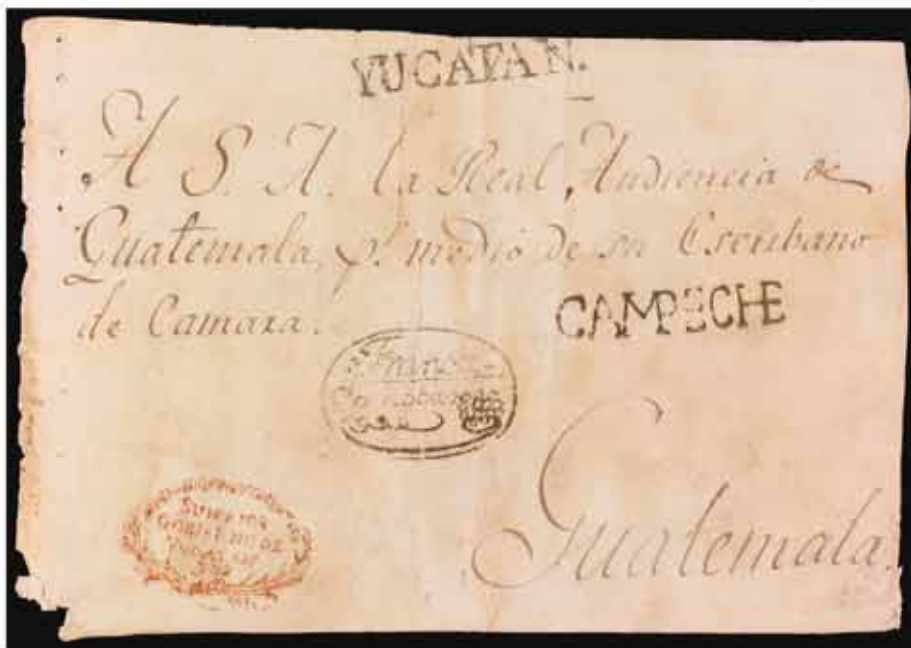 YUCATAN.
A S. A. la Real Audiencia de
Guatemala, pr. medio de su Escribano
de Camara.
CAMPECHE
Franco
GOBIERNO DE
Guatemala.